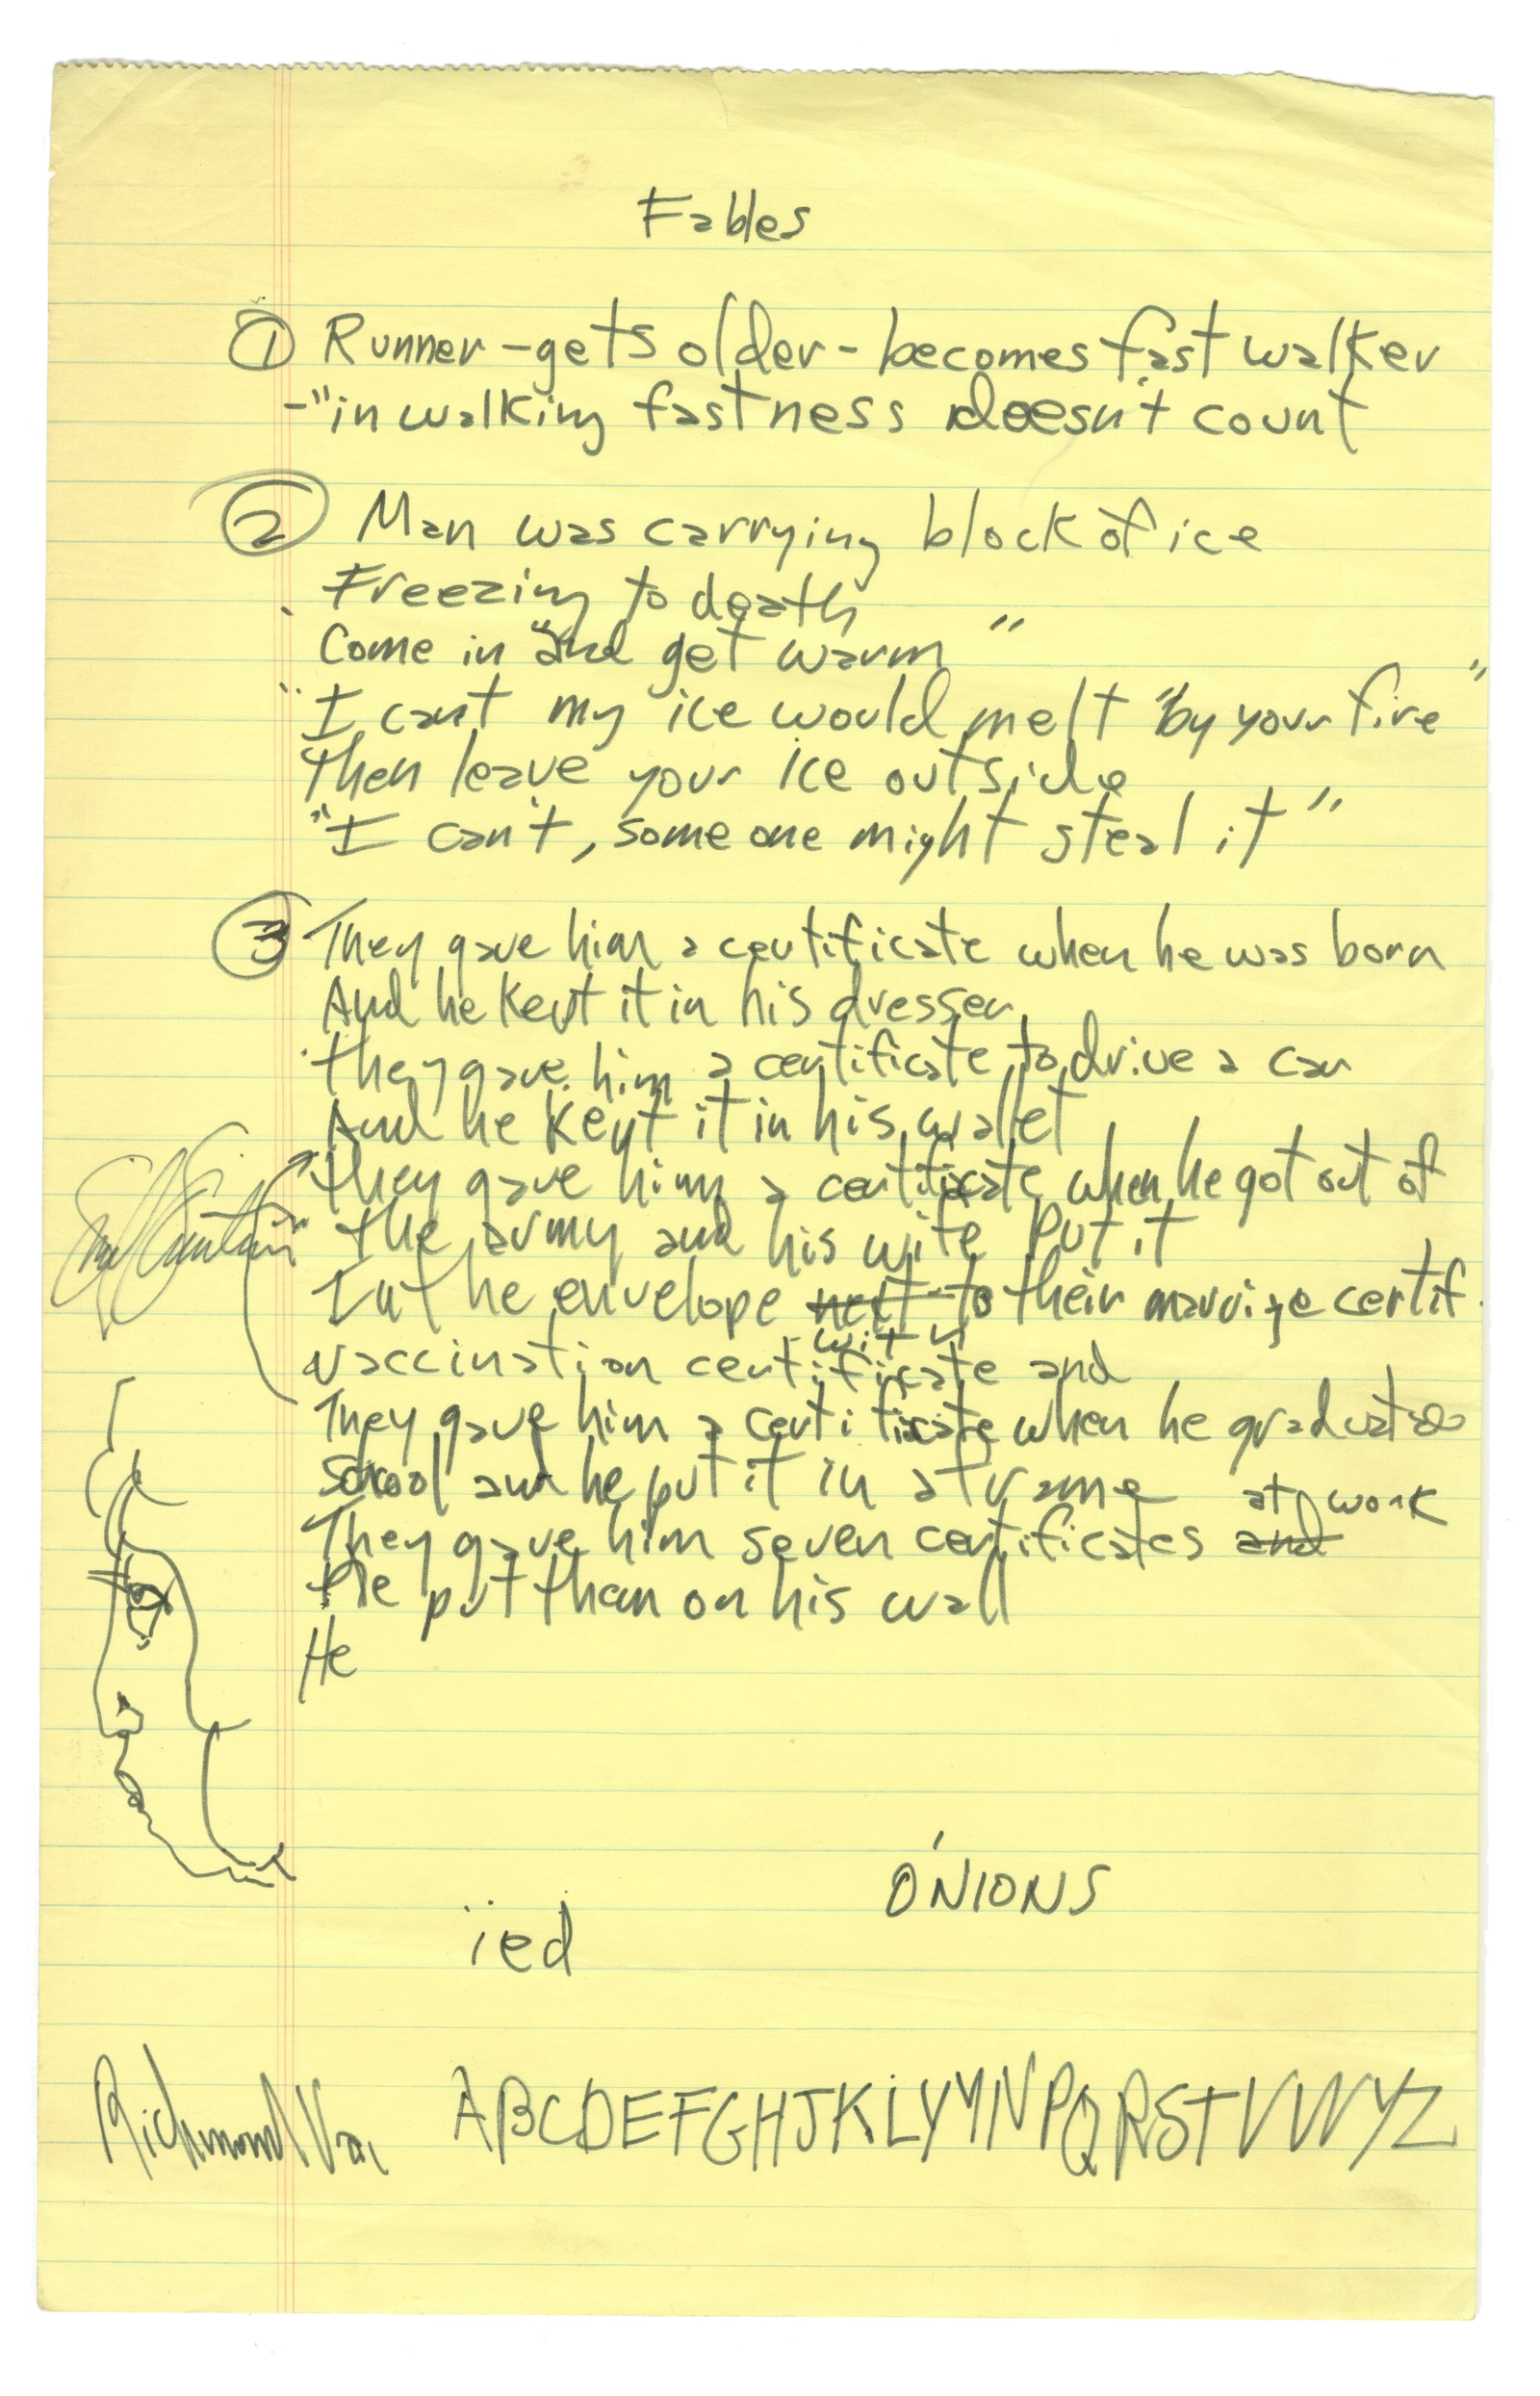 Fables
① Runner - gets older - becomes fast walker
- "in walking fastness doesn't count
② Man was carrying block of ice
Freezing to death
Come in "and get warm"
"I can't my ice would melt "by your fire"
Then leave your ice outside
"I can't, some one might steal it"
③ They gave him a certificate when he was born
And he kept it in his dresser
they gave him a certificate to drive a car
And he kept it in his wallet
they gave him a certificate when he got out of
the army and his wife put it
In the envelope next to their marriage certif.
with
vaccination certificate and
They gave him a certificate when he graduated
School and he put it in a frame
at work
They gave him seven certificates and
He put them on his wall
He
ÓNIONS
ied
Richmond Va.
ABCDEFGHJKLYMNPQRSTVWYZ